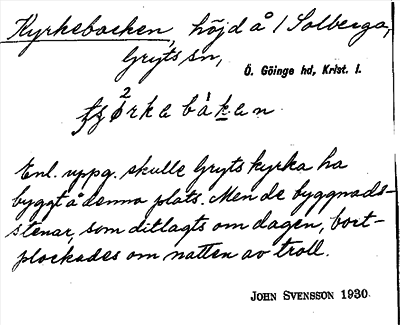 Kyrkebacken, höjd å 1 Solberga,
Gryts sn,
Ö. Göinge hd, Krist. l.
Enl. uppg. skulle Gryts kyrka ha
byggt å denna plats. Men de byggnads-
stenar, som ditlagts om dagen, bort-
plockades om natten av troll.
JOHN SVENSSON 1930.